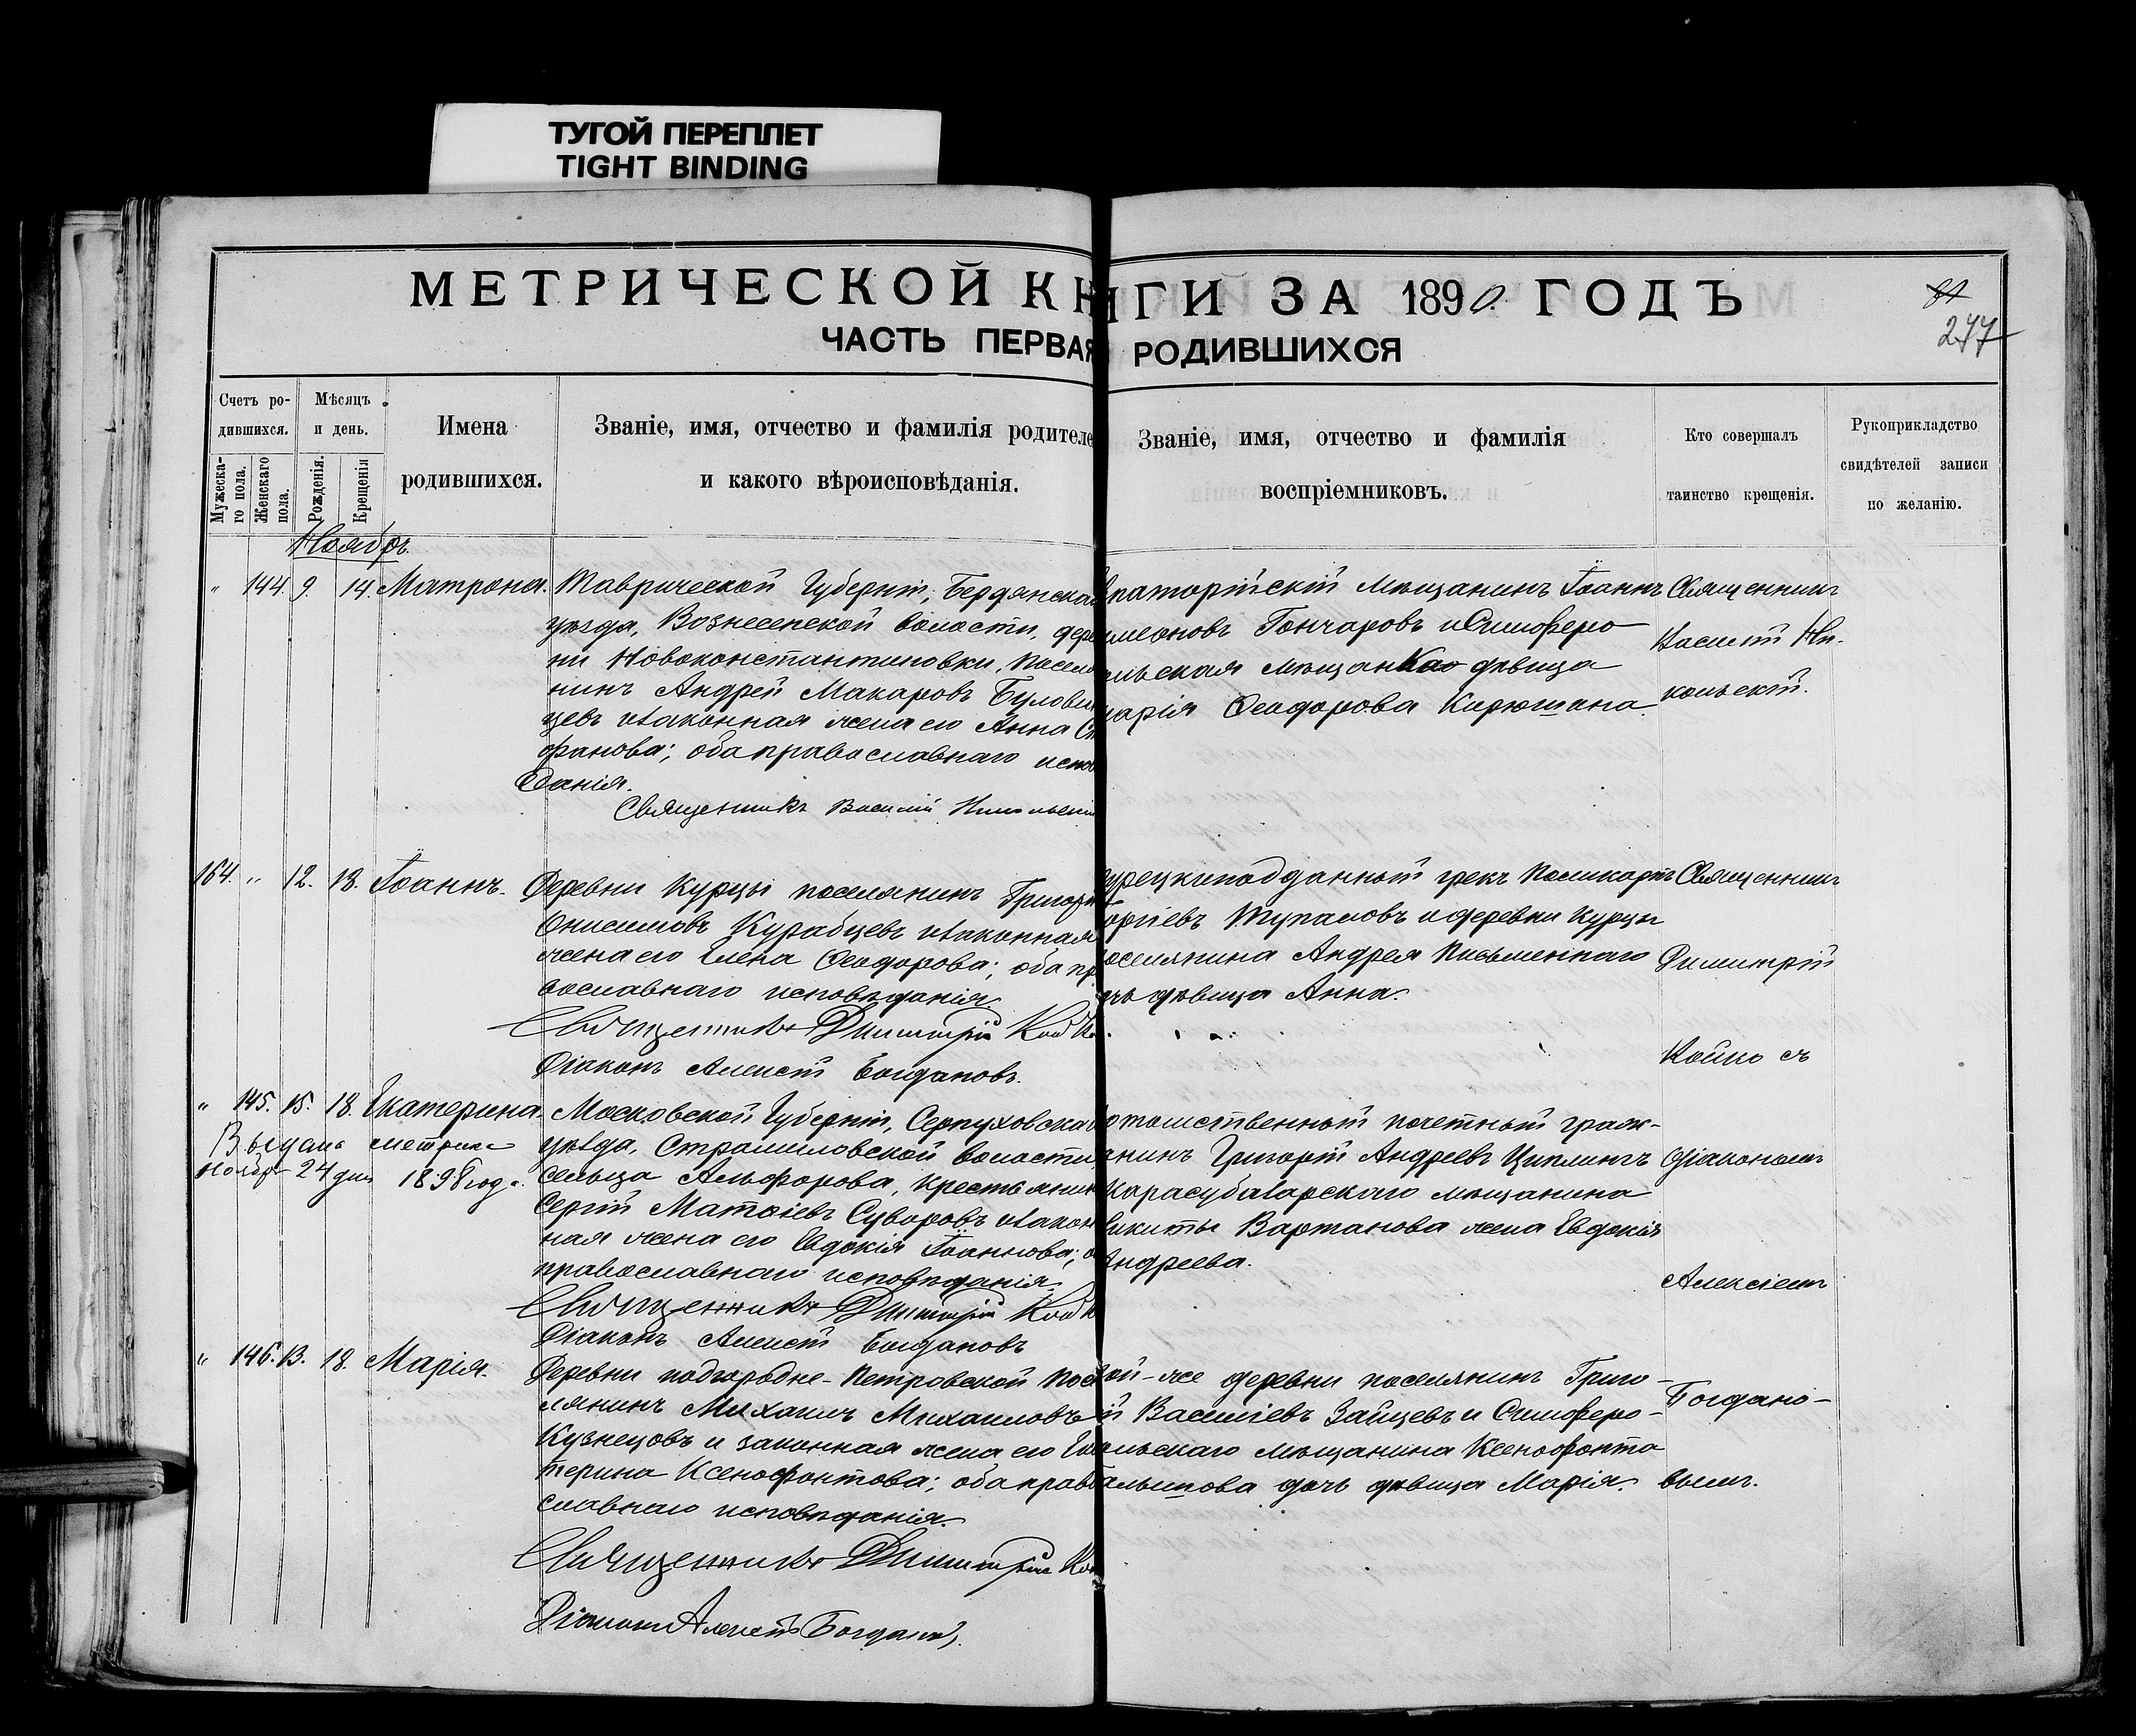 ТУГОЙ ПЕРЕПЛЕТ
TIGHT BINDING
МЕТРИЧЕСКОЙ КНИГИ ЗА 1890. ГОДЪ
ЧАСТЬ ПЕРВАЯ РОДИВШИХСЯ
277
Счетъ ро-
дившихся.
Мужеска-
го пола.
Женскаго
пола.
Мѣсяцъ
и день.
Рожденія.
Крещенія
Имена
родившихся.
Званіе, имя, отчество и фамилія родителе
и какого вѣроисповѣданія.
Званіе, имя, отчество и фамилія
воспріемниковъ.
Кто совершалъ
таинство крещенія.
Рукоприкладство
свидѣтелей записи
по желанію.
Ноябрь.
" 144. 9. 14. Матрона.
Таврической Губерніи, Бердянска
уѣзда, Вознесенской волости, дере
ни Новоконстантиновки, поселя
нинъ Андрей Макаровъ
цевъ и законная жена его Анна С
фанова; оба православнаго испов
ѣданія.
Священникъ Василій Никольскій
паторійскій мѣщанинъ Іоаннъ
имеоновъ Гончаровъ и Симферо
льская мѣщанка дѣвица
арія Ѳеодорова Кирюшина.
Священникъ
Василій Ни-
кольскій.
164. " 12. 18. Іоаннъ.
Деревни Курцы поселянинъ Григорій
Онисимовъ Курабцевъ и законная
жена его Елена Ѳеодорова; оба пр
вославнаго исповѣданія.
Священникъ Димитрій Кой
Діаконъ Алексій Богдановъ.
урецкиподданный грекъ Поликарпъ
оргіевъ Тупаловъ и деревни Курцы
оселянина Андрея Письменнаго
чь дѣвица Анна.
Священникъ
Димитрій
Койко съ
" 145. 15. 18. Екатерина.
Выдана метрика
Ноября 24 дня 1898 года.
Московской Губерніи, Серпуховска
уѣзда, Страмиловской волости
сельца Алфорова, крестьянин
Сергій Матѳіевъ Суворовъ и закон
ная жена его Евдокія Іоаннова; о
православнаго исповѣданія.
Священникъ Димитрій Кой
Діаконъ Алексій Богдановъ
отомственный почетный граж-
нинъ Григорій Андреевъ Циплинъ
Карасубазарскаго мѣщанина
икиты Вартанова жена Евдокія
Андреева.
Діакономъ
Алексіемъ
" 146. 13. 18. Марія.
Деревни подгородне-Петровской посе
лянинъ Михаилъ Михаиловъ
Кузнецовъ и законная жена его Ека
терина Ксенофонтова; оба право
славнаго исповѣданія.
Священникъ Димитрій Кой
Діаконъ Алексій Богдановъ.
ой-же деревни поселянинъ Григо-
й Василіевъ Зайцевъ и Симферо-
ольскаго мѣщанина Ксенофонта
альшова дочь дѣвица Марія.
Богдано-
вымъ.